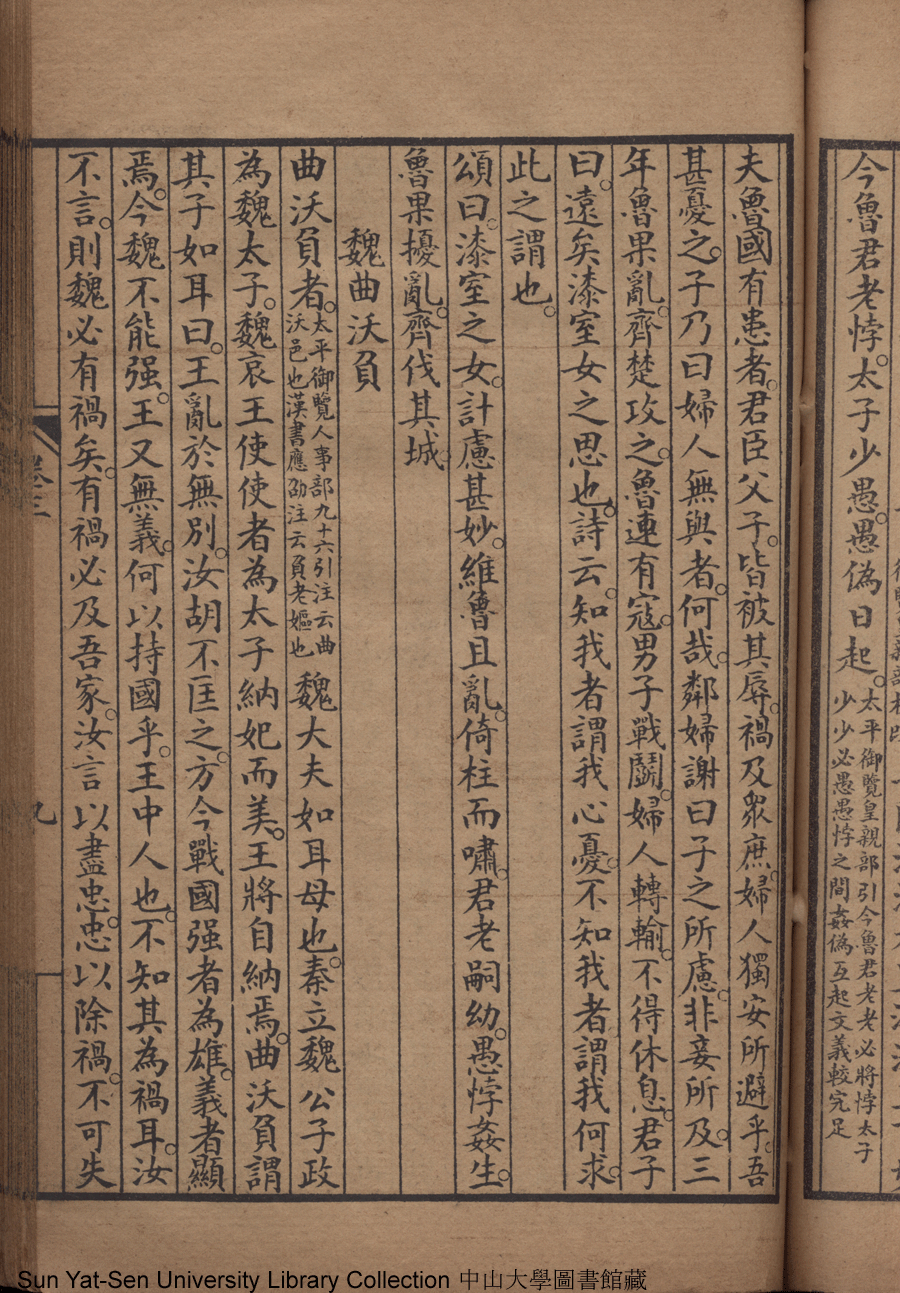 今魯君老悖。太子少愚。愚偽日起。太平御覽皇親部引今魯君老老必將悖太子少少必愚愚悖之間姦偽互起文義較完足
夫魯國有患者。君臣父子。皆被其辱。禍及眾庶。婦人獨安所避乎。吾
甚憂之。子乃曰婦人無與者。何哉。鄰婦謝曰子之所慮。非妾所及。三
年魯果亂。齊楚攻之。魯連有寇。男子戰鬭。婦人轉輸。不得休息。君子
曰。遠矣漆室女之思也。詩云。知我者謂我心憂。不知我者謂我何求。
此之謂也。
頌曰。漆室之女。計慮甚妙。維魯且亂。倚柱而嘯。君老嗣幼。愚悖姦生。
魯果擾亂。齊伐其城。
魏曲沃負
曲沃負者。太平御覽人事部九十六引注云曲沃邑也漢書應劭注云負老嫗也魏大夫如耳母也。秦立魏公子政
為魏太子。魏哀王使使者為太子納妃而美。王將自納焉。曲沃負謂
其子如耳曰。王亂於無別。汝胡不匡之。方今戰國强者為雄。義者顯
焉。今魏不能强。王又無義。何以持國乎。王中人也。不知其為禍耳。汝
不言。則魏必有禍矣。有禍必及吾家。汝言以盡忠。忠以除禍。不可失
Sun Yat-Sen University Library Collection 中山大學圖書館藏